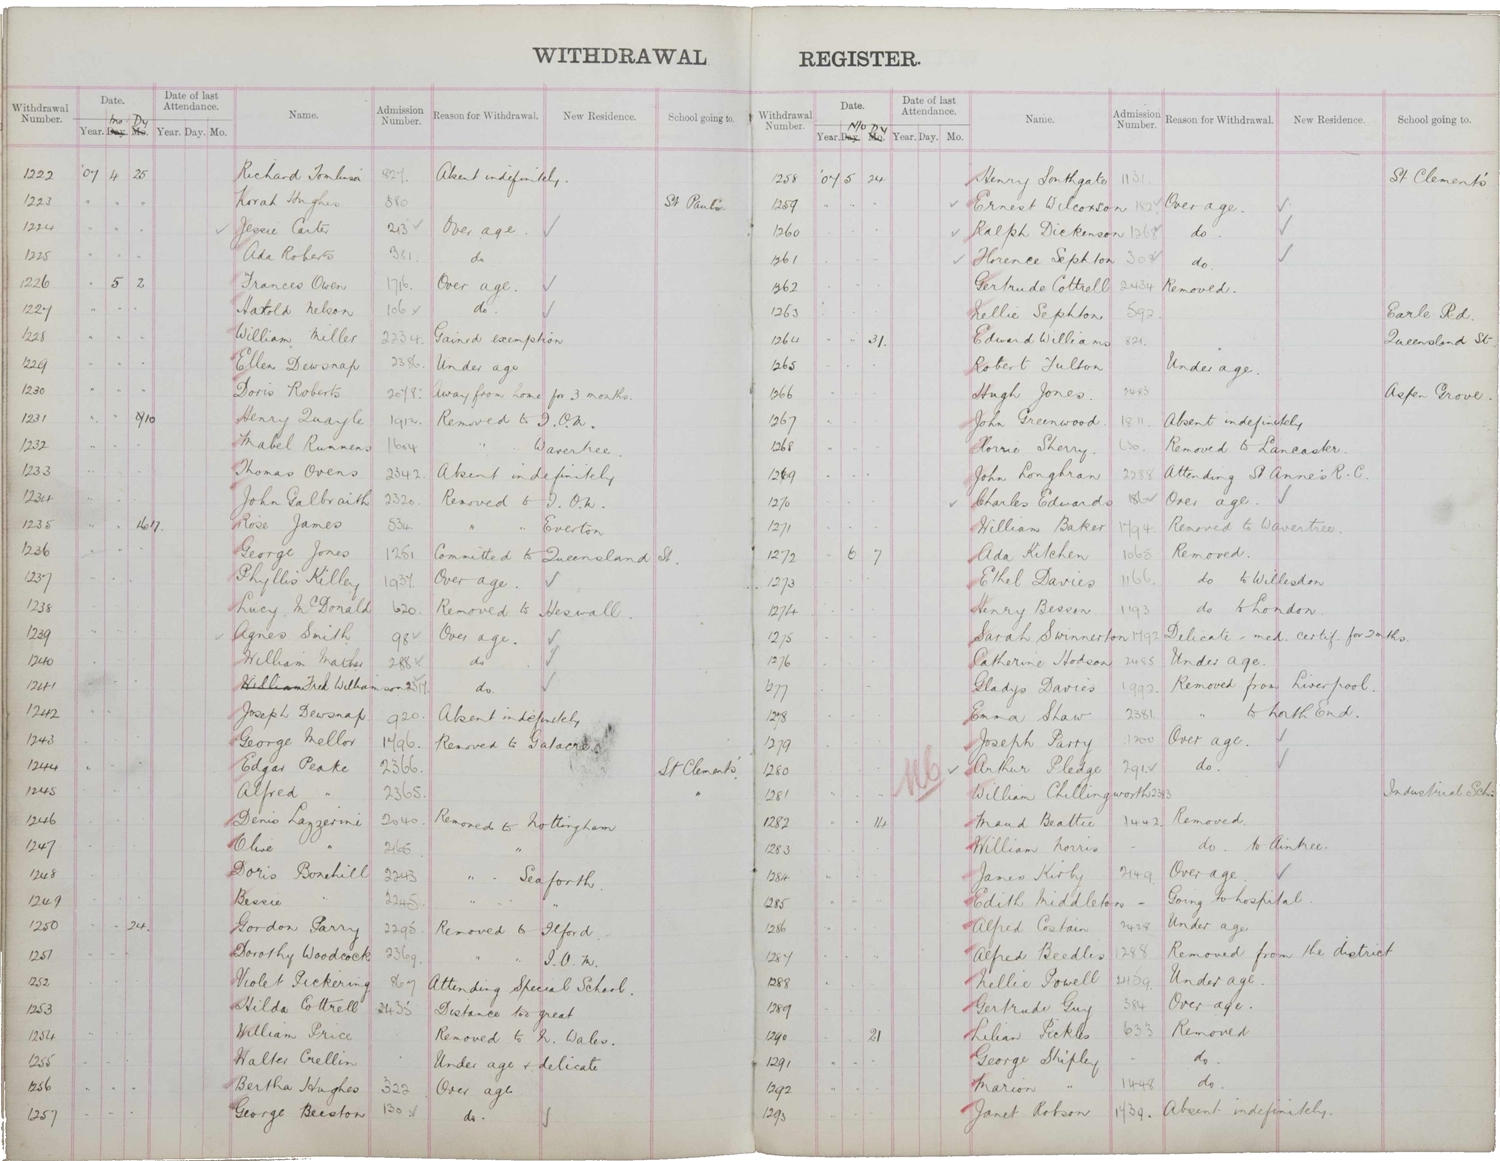 WITHDRAWAL REGISTER.
Withdrawal Number. Date. Year. Day. Mo. Mo Dy Date of last Attendance. Year. Day. Mo. Name. Admission Number. Reason for Withdrawal. New Residence. School going to.
1222 '07 4 25 Richard Tomlinson 827. Absent indefinitely.
1223 " " " Norah Hughes 380 St Paul's
1224 " " " ✓ Jessie Carter 213 ✓ Over age. ✓
1225 " " " Ada Roberts 381. do
1226 " 5 2 Frances Owen 1716. Over age. ✓
1227 " " " Harold Nelson 106 ✓ do. ✓
1228 " " " William Miller 2234. Gained exemption
1229 " " " Ellen Dewsnap 2386. Under age
1230 " " " Doris Roberts 2078. Away from home for 3 months.
1231 " " 10 Henry Quayle 1912. Removed to I.O.M.
1232 " " " Mabel Runnens 1604 " Wavertree.
1233 " " " Thomas Ovens 2342. Absent indefinitely
1234 " " " John Galbraith 2320. Removed to I.O.M.
1235 " " 17. Rose James 534. " " Everton
1236 " " " George Jones 1251 Committed to Queensland St.
1237 " " " Phyllis Killey 1937. Over age. ✓
1238 " " " Lucy McDonald 620. Removed to Heswall.
1239 " " " ✓ Agnes Smith 98 ✓ Over age. ✓
1240 " " " William Mather 288 ✓ do ✓
1241 " " " William Fred Williamson do. ✓
1242 " " " Joseph Dewsnap 920. Absent indefinitely
1243 " " " George Mellor 1796. Removed to Gatacre.
1244 " " " Edgar Peake 2366. St Clement's
1245 " " " Alfred " 2365. "
1246 " " " Denis Lazzerini 2040. Removed to Nottingham
1247 " " " Olive " 2165. "
1248 " " " Doris Bonehill 2243 " " Seaforth.
1249 " " " Bessie " 2245. " " "
1250 " " 24. Gordon Parry 2295. Removed to Ilford.
1251 " " " Dorothy Woodcock 2369. " " I.O.M.
1252 " " " Violet Pickering 867 Attending Special School.
1253 " " " Hilda Cottrell 2435 Distance too great
1254 " " " William Price Removed to N. Wales.
1255 " " " Walter Crellin Under age & delicate
1256 " " " Bertha Hughes 322 Over age
1257 " " " George Beeston 130 ✓ do. ✓
Withdrawal Number. Date. Year. Day. Mo. Mo Dy Date of last Attendance. Year. Day. Mo. Name. Admission Number. Reason for Withdrawal. New Residence. School going to.
1258 '07 5 24 Henry Southgate 1131. St Clement's
1259 " " " ✓ Ernest Wilcoxson 182 ✓ Over age. ✓
1260 " " " ✓ Ralph Dickenson 1268 do. ✓
1261 " " " ✓ Florence Sephton 308 ✓ do. ✓
1262 " " " Gertrude Cottrell 2434 Removed.
1263 " " " Nellie Sephton 592. Earle Rd.
1264 " " 31. Edward Williams 821. Queensland St.
1265 " " " Robert Fulton Under age.
1266 " " " Hugh Jones. 2483 Aspen Grove.
1267 " " " John Greenwood 1811. Absent indefinitely
1268 " " " Florrie Sherry. Removed to Lancaster.
1269 " " " John Longhran 2288 Attending St Anne's R.C.
1270 " " " ✓ Charles Edwards Over age. ✓
1271 " " " William Baker 1794. Removed to Wavertree.
1272 " 6 7 Ada Kitchen 1065 Removed.
1273 " " " Ethel Davies 1166. do to Willesdon
1274 " " " Henry Besson 1193 do to London.
1275 " " " Sarah Swinnerton 1792 Delicate - med. certif. for 2 mths.
1276 " " " Catherine Hodson 2485 Under age.
1277 " " " Gladys Davies 1992. Removed from Liverpool.
1278 " " " Emma Shaw 2381. " to North End.
1279 " " " Joseph Parry 1200 Over age. ✓
1280 " " " ✓ Arthur Pledge 291 ✓ do. ✓
116
1281 " " " William Chillingworth 2383 Industrial Sch.
1282 " " 14 Maud Beattie 1442. Removed
1283 " " " William Norris - do. to Aintree.
1284 " " " James Kirby 2149. Over age. ✓
1285 " " " Edith Middleton - Going to hospital.
1286 " " " Alfred Costain 2428 Under age
1287 " " " Alfred Beedles 1288 Removed from the district
1288 " " " Nellie Powell 2459. Under age.
1289 " " " Gertrude Guy 384 Over-age.
1290 " " 21 Lilian Pickles 633 Removed
1291 " " " George Shipley - do.
1292 " " " Marion " 1448 do.
1293 " " " Janet Robson 1439. Absent indefinitely.